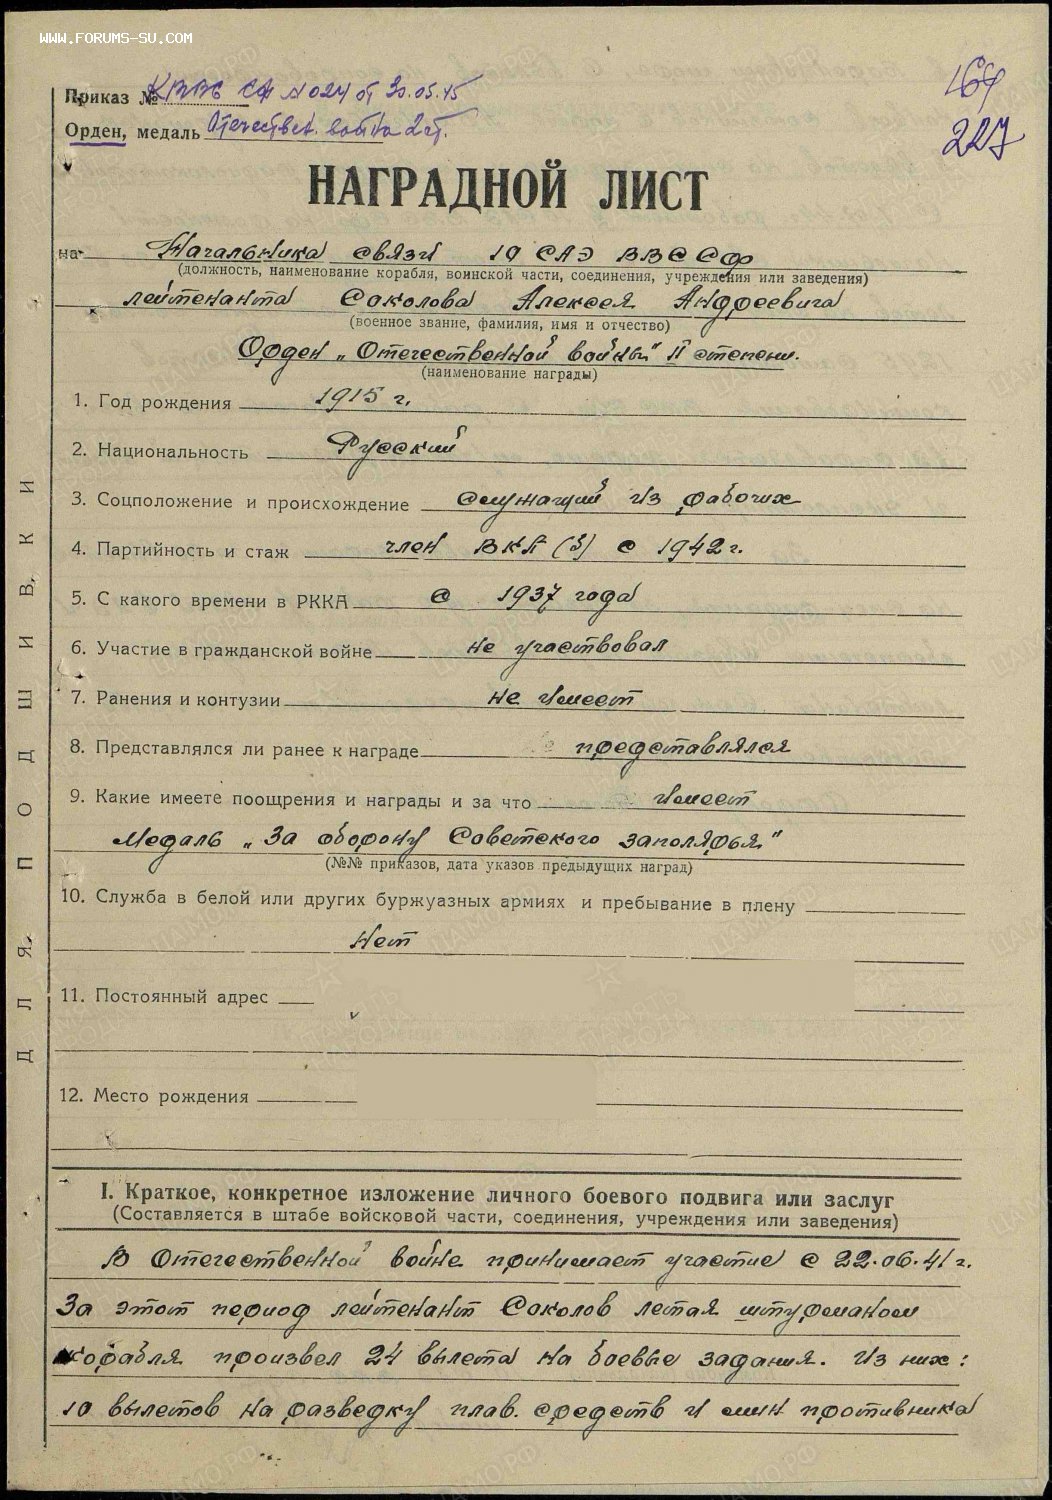 WWW.FORUMS-SU.COM
Приказ № КВВС СФ № 024 от 30.05.45
Орден, медаль Отечествен. война 2 ст.
227
НАГРАДНОЙ ЛИСТ
на Начальника связи 10 САЭ ВВС СФ
(должность, наименование корабля, воинской части, соединения, учреждения или заведения)
лейтенанта Соколова Алексея Андреевича
(военное звание, фамилия, имя и отчество)
Орден „Отечественной войны" II степени.
(наименование награды)
1. Год рождения 1915 г.
2. Национальность Русский
3. Соцположение и происхождение служащий из рабочих
4. Партийность и стаж член ВКП(б) с 1942 г.
5. С какого времени в РККА с 1937 года
6. Участие в гражданской войне не участвовал
7. Ранения и контузии не имеет
8. Представлялся ли ранее к награде представлялся
9. Какие имеете поощрения и награды и за что имеет
Медаль „За оборону Советского заполярья"
(№№ приказов, дата указов предыдущих наград)
10. Служба в белой или других буржуазных армиях и пребывание в плену
Нет
11. Постоянный адрес
12. Место рождения
I. Краткое, конкретное изложение личного боевого подвига или заслуг
(Составляется в штабе войсковой части, соединения, учреждения или заведения)
В Отечественной войне принимает участие с 22.06.41 г.
За этот период лейтенант Соколов летая штурманом
корабля произвел 24 вылета на боевые задания. Из них:
10 вылетов на разведку плав. средств и мин противника
ДЛЯ ПОДШИВКИ